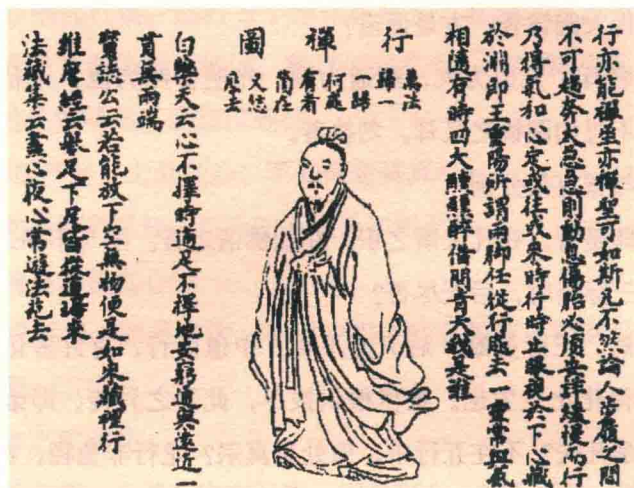 行亦能禪坐亦禪聖可如斯凡不然論人步履之間
不可趨奔太急急則動息傷胎必須安詳緩慢而行
乃得氣和心定或往或來時行時止眼視於下心藏
於淵即王重陽所謂兩脚任從行處去一靈常與氣
相隨有時四大醺醺醉借問青天我是誰
行禪圖
萬法
歸一
一歸
何處
有
箇在
又恁
麼去
白樂天云心不擇時適足不擇地安窮通與遠近一
貫無兩端
寶誌公云若能放下空無物便是如來藏裡行
維摩經云舉足下足皆從道場來
法藏集云晝心夜心常遊法苑去